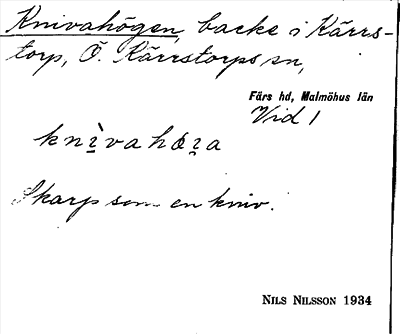 Knivahögen, backe i Kärrs-
torp, Ö. Kärrstorps sn,
Färs hd, Malmöhus län
Vid 1
Skarp som en kniv.
NILS NILSSON 1934